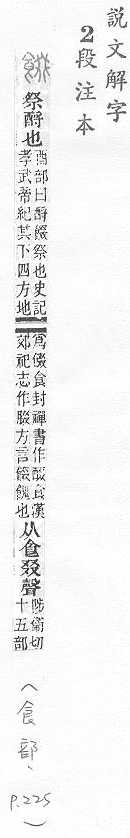 説文解字
2段注本
餟
祭酹也
酉部曰酹餟祭也史記
孝武帝紀其下四方地
爲餟食封禪書作醊食漢
郊祀志作腏方言餟餽也
从食叕聲
陟衛切
十五部
(食部、
p.225
)